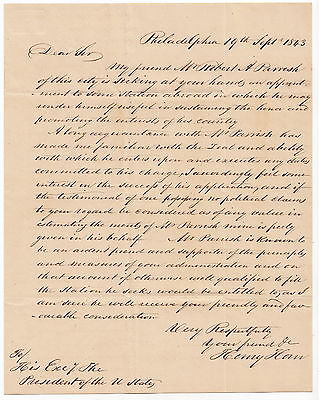 Philadelphia 19th Septr 1843
Dear Sir
My friend Mr Robert A. Parrish
of this city is seeking at your hands an appoint-
ment to some Station abroad in which he may
render himself useful in sustaining the honor and
promoting the interests of his country
A long acquaintance with Mr Parrish has
made me familiar with the Zeal and ability
with which he enters upon and executes any duties
committed to his charge, I accordingly feel some
interest in the success of his application, and if
the testimonial of one possessing no political claims
to your regard be considered as of any value in
estimating the merits of Mr Parrish mine is freely
given in his behalf. Mr Parrish is known to
be an ardent friend and supporter of the principles
and measures of your administration and on
that account if otherwise well qualified to fill
the Station he seeks would be entitled to, as I
am sure he will receive your friendly and fav-
ourable consideration
Very Respectfully
Your friend &c
Henry Horn
To/
His Excy. The
President of the U States